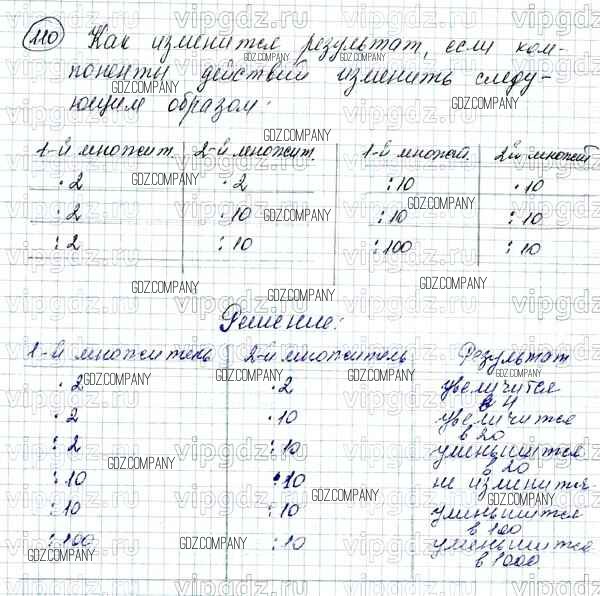 110 Как изменится результат, если ком-
поненты действий изменить следу-
ющим образом:
1-й множит. 2-й множит. 1-й множит. 2й множит
·2 ·2 :10 ·10
:2 ·10 :10 :10
:2 :10 :100 :10
Решение:
1-й множитель 2-й множитель Результат
·2 ·2 увеличится
в 4
·2 ·10 увеличится
в 20
:2 :10 уменьшится
в 20
:10 ·10 не изменится
:10 :10 уменьшится
в 100
:100 :10 уменьшится
в 1000
GDZ.COMPANY
vipgdz.ru